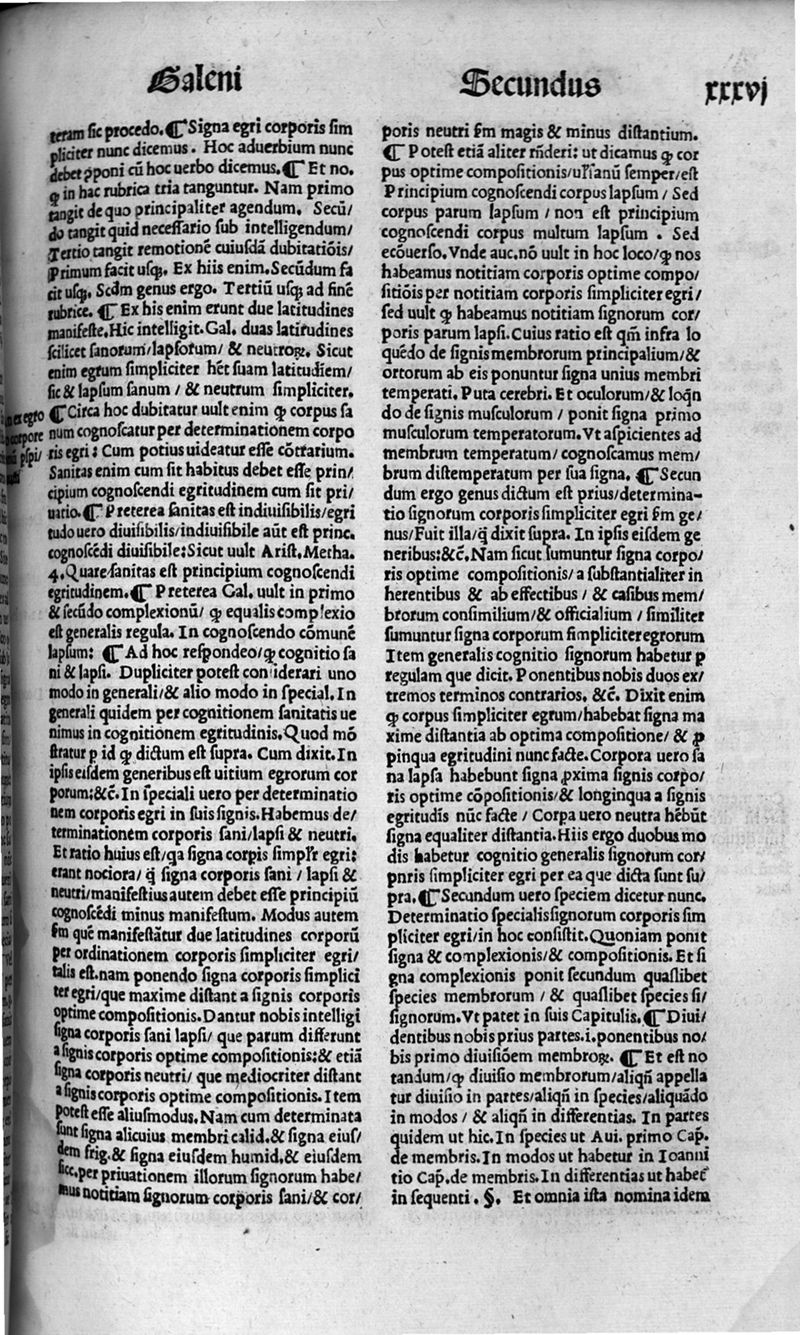 Galeni
Secundus
xxxvj
teram sic procedo. ¶ Signa egri corporis sim
pliciter nunc dicemus. Hoc aduerbium nunc
debet ꝓponi cū hoc uerbo dicemus. ¶ Et no.
ꝙ in hac rubrica tria tanguntur. Nam primo
tangit de quo principaliter agendum. Secū/
do tangit quid necessario sub intelligendum/
Tertio tangit remotionē cuiusdā dubitatiōis/
Primum facit usqꝫ. Ex hiis enim. Secūdum fa
cit usqꝫ. Scḋm genus ergo. Tertiū usqꝫ ad finē
rubrice. ¶ Ex his enim erunt due latitudines
manifeste. Hic intelligit. Gal. duas latitudines
scilicet sanorum/lapsorum/ & neutroꝝ. Sicut
enim egrum simpliciter hēt suam latitudiem/
sic & lapsum sanum / & neutrum simpliciter.
¶ Circa hoc dubitatur uult enim ꝙ corpus sa
num cognoscatur per determinationem corpo
ris egri : Cum potius uideatur esse cōtrarium.
Sanitas enim cum sit habitus debet esse prin/
cipium cognoscendi egritudinem cum sit pri/
uatio. ¶ Preterea sanitas est indiuisibilis/egri
tudo uero diuisibilis/indiuisibile aūt est princ.
cognoscēdi diuisibile: Sicut uult Arist. Metha.
4. Quare sanitas est principium cognoscendi
egritudinem. ¶ Preterea Gal. uult in primo
& secūdo complexionū/ ꝙ equalis complexio
est generalis regula. In cognoscendo cōmunē
lapsum: ¶ Ad hoc respondeo/ꝙ cognitio sa
ni & lapsi. Dupliciter potest considerari uno
modo in generali/& alio modo in special. In
generali quidem per cognitionem sanitatis ue
nimus in cognitionem egritudinis. Quod mō
stratur ꝑ id ꝙ dictum est supra. Cum dixit. In
ipsis eisdem generibus est uitium egrorum cor
porum: &c̄. In speciali uero per determinatio
nem corporis egri in suis signis. Habemus de/
terminationem corporis sani/lapsi & neutri.
Et ratio huius est/qa signa corpis simplr̄ egri:
erant nociora/ q̄ signa corporis sani / lapsi &
neutri/manifestius autem debet esse principiū
cognoscēdi minus manifestum. Modus autem
ẜm quē manifestātur due latitudines corporū
per ordinationem corporis simpliciter egri/
talis est. nam ponendo signa corporis simplici
ter egri/que maxime distant a signis corporis
optime compositionis. Dantur nobis intelligi
signa corporis sani lapsi/ que parum differunt
a signis corporis optime compositionis: & etiā
signa corporis neutri/ que mediocriter distant
a signis corporis optime compositionis. Item
potest esse alius modus. Nam cum determinata
sunt signa alicuius membri calid. & signa eius/
dem frig. & signa eiusdem humid. & eiusdem
sicc. per priuationem illorum signorum habe/
mus notitiam signorum corporis sani/& cor/
poris neutri ẜm magis & minus distantium.
¶ Potest etiā aliter rn̄deri: ut dicamus ꝙ cor
pus optime compositionis/ semper/est
Principium cognoscendi corpus lapsum / Sed
corpus parum lapsum / non est principium
cognoscendi corpus multum lapsum . Sed
ecōuerso. Vnde auc. nō uult in hoc loco/ꝙ nos
habeamus notitiam corporis optime compo/
sitiōis per notitiam corporis simpliciter egri/
sed uult ꝙ habeamus notitiam signorum cor/
poris parum lapsi. Cuius ratio est qm̄ infra lo
quēdo de signis membrorum principalium/&
ortorum ab eis ponuntur signa unius membri
temperati. Puta cerebri. Et oculorum/& loqn̄
do de signis musculorum / ponit signa primo
musculorum temperatorum. Vt aspicientes ad
membrum temperatum/ cognoscamus mem/
brum distemperatum per sua signa. ¶ Secun
dum ergo genus dictum est prius/determina-
tio signorum corporis simpliciter egri ẜm ge/
nus/Fuit illa/q̄ dixit supra. In ipsis eisdem ge
neribus: &c̄. Nam sicut sumuntur signa corpo/
ris optime compositionis/ a substantialiter in
herentibus & ab effectibus / & casibus mem/
brorum consimilium/& officialium / similiter
sumuntur signa corporum simpliciter egrorum
Item generalis cognitio signorum habetur ꝑ
regulam que dicit. Ponentibus nobis duos ex/
tremos terminos contrarios. &c̄. Dixit enim
ꝙ corpus simpliciter egrum/habebat signa ma
xime distantia ab optima compositione/ & ꝓ
pinqua egritudini nunc facte. Corpora uero sa
na lapsa habebunt signa ꝓxima signis corpo/
ris optime cōpositionis/& longinqua a signis
egritudīs nūc facte / Corpa uero neutra hēbūt
signa equaliter distantia. Hiis ergo duobus mo
dis habetur cognitio generalis signorum cor/
pnris simpliciter egri per ea que dicta sunt su/
pra. ¶ Secundum uero speciem dicetur nunc.
Determinatio specialis signorum corporis sim
pliciter egri/in hoc consistit. Quoniam ponit
signa & complexionis/& compositionis. Et si
gna complexionis ponit secundum quaslibet
species membrorum / & quaslibet species si/
signorum. Vt patet in suis Capitulis. ¶ Diui/
dentibus nobis prius partes .i. ponentibus no/
bis primo diuisiōem membroꝝ. ¶ Et est no
tandum/ꝙ diuisio membrorum/aliqn̄ appella
tur diuisio in partes/aliqn̄ in species/aliquādo
in modos / & aliqn̄ in differentias. In partes
quidem ut hic. In species ut Aui. primo Cap̄.
de membris. In modos ut habetur in Ioanni
tio Cap̄. de membris. In differentias ut habet̄
in sequenti . §. Et omnia ista nomina idem